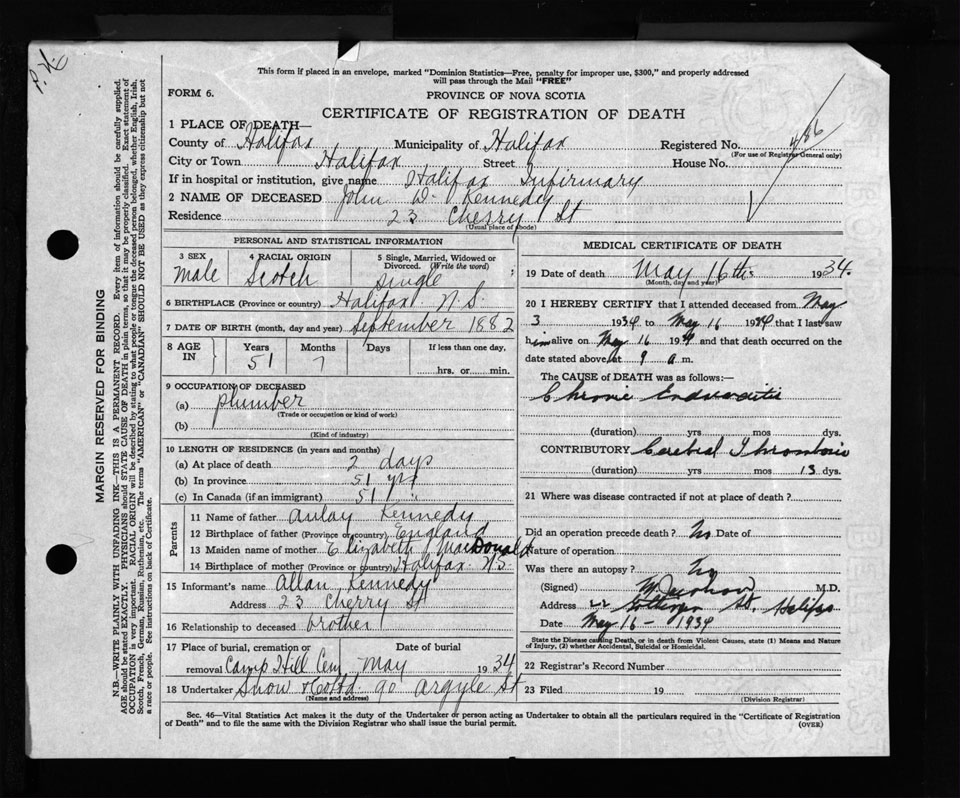 P. H.
This form if placed in an envelope, marked "Dominion Statistics—Free, penalty for improper use, $300," and properly addressed
will pass through the Mail "FREE"
FORM 6.
PROVINCE OF NOVA SCOTIA
CERTIFICATE OF REGISTRATION OF DEATH
1 PLACE OF DEATH—
County of Halifax Municipality of Halifax Registered No. 486
(For use of Registrar General only)
City or Town Halifax Street House No.
If in hospital or institution, give name Halifax Infirmary
2 NAME OF DECEASED John D. Kennedy
Residence 23 Cherry St
(Usual place of abode)
MARGIN RESERVED FOR BINDING
N.B.—WRITE PLAINLY WITH UNFADING INK—THIS IS A PERMANENT RECORD. Every item of information should be carefully supplied.
AGE should be stated EXACTLY. PHYSICIANS should STATE CAUSE OF DEATH in plain terms, so that it may be properly classified. Exact statement of
OCCUPATION is very important. RACIAL ORIGIN will be described by stating to what people or tongue the deceased person belonged, whether English, Irish,
Scotch, French, German, Russian, Ruthenian, etc. The terms "AMERICAN" or "CANADIAN" SHOULD NOT BE USED as they express citizenship but not
a race or people. See instructions on back of Certificate.
PERSONAL AND STATISTICAL INFORMATION
3 SEX
male
4 RACIAL ORIGIN
Scotch
5 Single, Married, Widowed or
Divorced. (Write the word)
Single
6 BIRTHPLACE (Province or country) Halifax N.S.
7 DATE OF BIRTH (month, day and year) September 1882
8 AGE IN
Years Months Days If less than one day,
51 7 hrs. or min.
9 OCCUPATION OF DECEASED
(a) plumber
(Trade or occupation or kind of work)
(b)
(Kind of industry)
10 LENGTH OF RESIDENCE (in years and months)
(a) At place of death 2 days
(b) In province 51 yrs
(c) In Canada (if an immigrant) 51 "
Parents
11 Name of father Aulay Kennedy
12 Birthplace of father (Province or country) England
13 Maiden name of mother Elizabeth MacDonald
14 Birthplace of mother (Province or country) Halifax N.S.
15 Informant's name Allan Kennedy
Address 23 Cherry St
16 Relationship to deceased brother
17 Place of burial, cremation or Date of burial
removal Camp Hill Cem May 1934
18 Undertaker Snow & Co Ltd. 90 Argyle St
(Name and address)
MEDICAL CERTIFICATE OF DEATH
19 Date of death May 16th 1934.
(Month, day and year)
20 I HEREBY CERTIFY that I attended deceased from May
3 1934 to May 16 1934 that I last saw
him alive on May 16 1934 and that death occurred on the
date stated above, at 9 a m.
The CAUSE of DEATH was as follows:—
Chronic Endocarditis
(duration) yrs mos dys.
CONTRIBUTORY Cerebral Thrombosis
(duration) yrs mos 13 dys.
21 Where was disease contracted if not at place of death?
Did an operation precede death? No Date of
Nature of operation
Was there an autopsy? No
(Signed) M.D.
Address St. Halifax
Date May 16 - 1934
State the Disease causing Death, or in death from Violent Causes, state (1) Means and Nature
of Injury, (2) whether Accidental, Suicidal or Homicidal.
22 Registrar's Record Number
23 Filed 19
(Division Registrar)
Sec. 46—Vital Statistics Act makes it the duty of the Undertaker or person acting as Undertaker to obtain all the particulars required in the "Certificate of Registration
of Death" and to file the same with the Division Registrar who shall issue the burial permit.
(OVER)